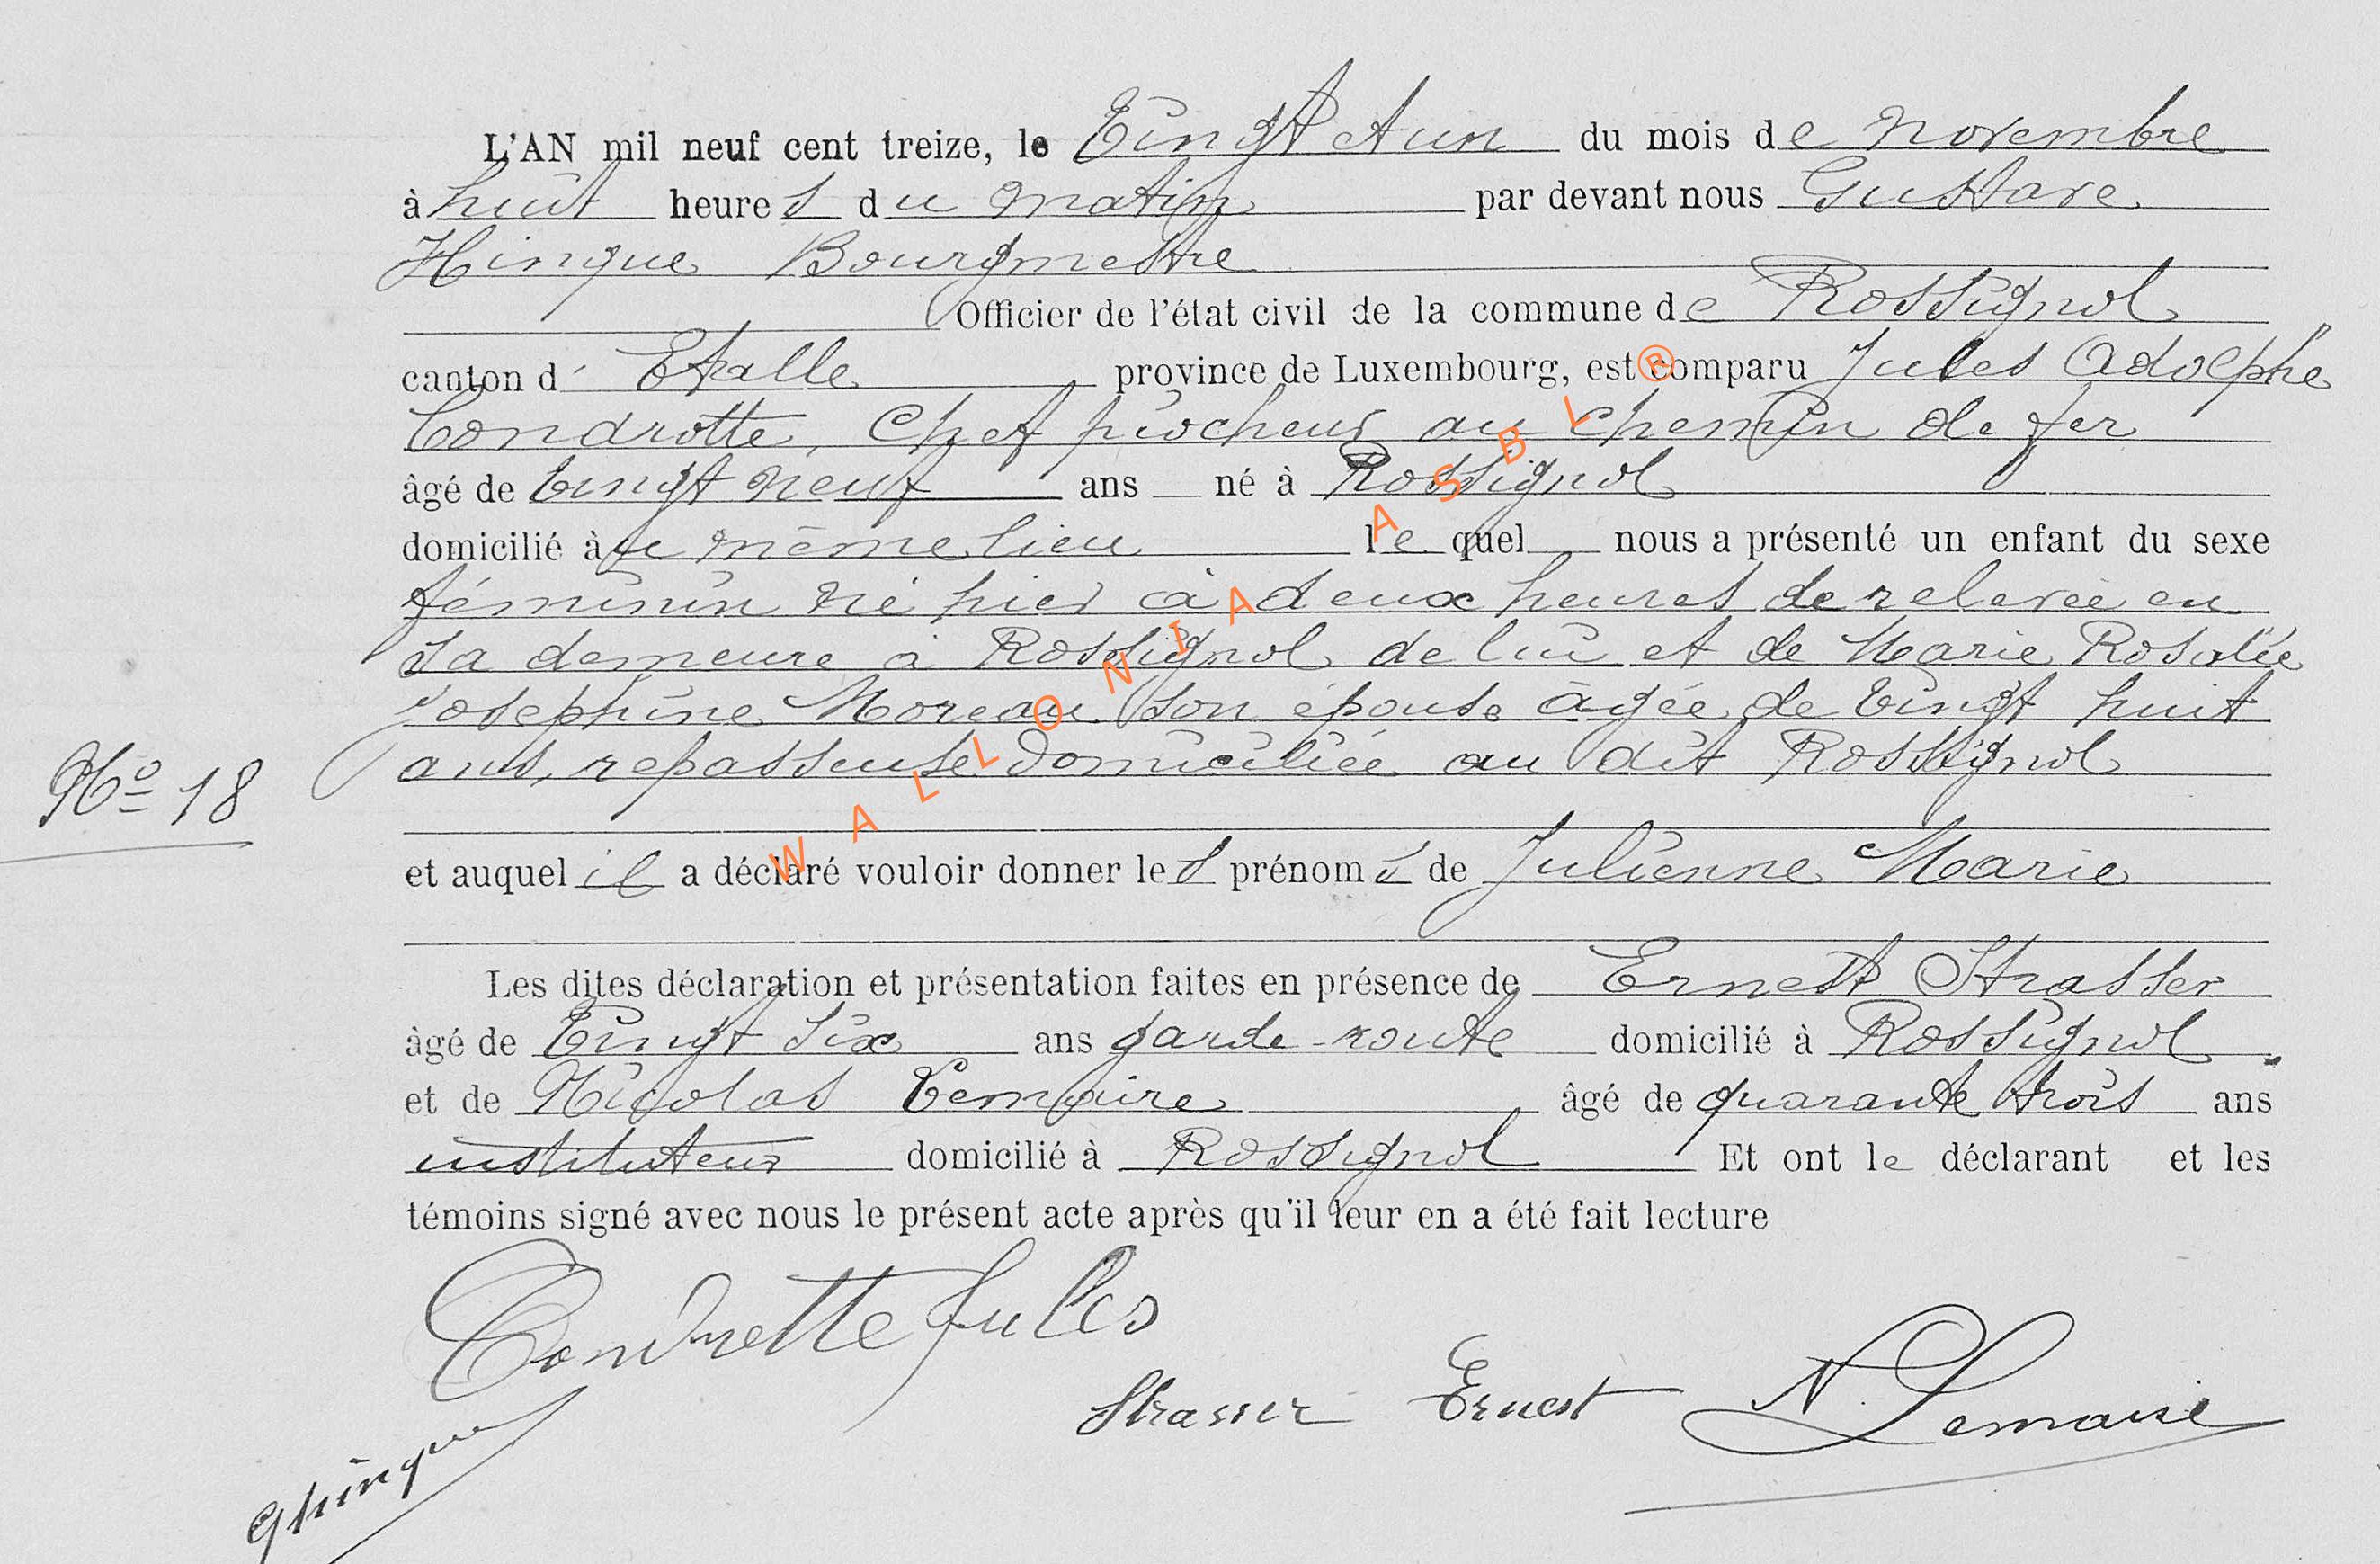 L'AN mil neuf cent treize, le Vingt et un du mois de novembre
à huit heures du matin par devant nous Gustave
Hinque Bourgmestre
Officier de l'état civil de la commune de Rossignol
canton d' Etalle province de Luxembourg, est comparu Jules Adolphe
Condrotte, Chef piocheur au chemin de fer
âgé de vingt neuf ans né à Rossignol
domicilié à ce même lieu lequel nous a présenté un enfant du sexe
féminin né hier à deux heures de relevée en
sa demeure à Rossignol de lui et de Marie Rosalie
Josephine Moreau son épouse âgée de vingt huit
ans, repasseuse domiciliée au dit Rossignol
No 18
et auquel il a déclaré vouloir donner les prénoms de Julienne Marie
Les dites déclaration et présentation faites en présence de Ernest Strasser
âgé de Vingt six ans garde-route domicilié à Rossignol
et de Nicolas Lemaire âgé de quarante trois ans
instituteur domicilié à Rossignol Et ont le déclarant et les
témoins signé avec nous le présent acte après qu'il leur en a été fait lecture
Condrotte Jules
Strasser Ernest N. Lemaire
GHinque
WALLONIA ASBL ®